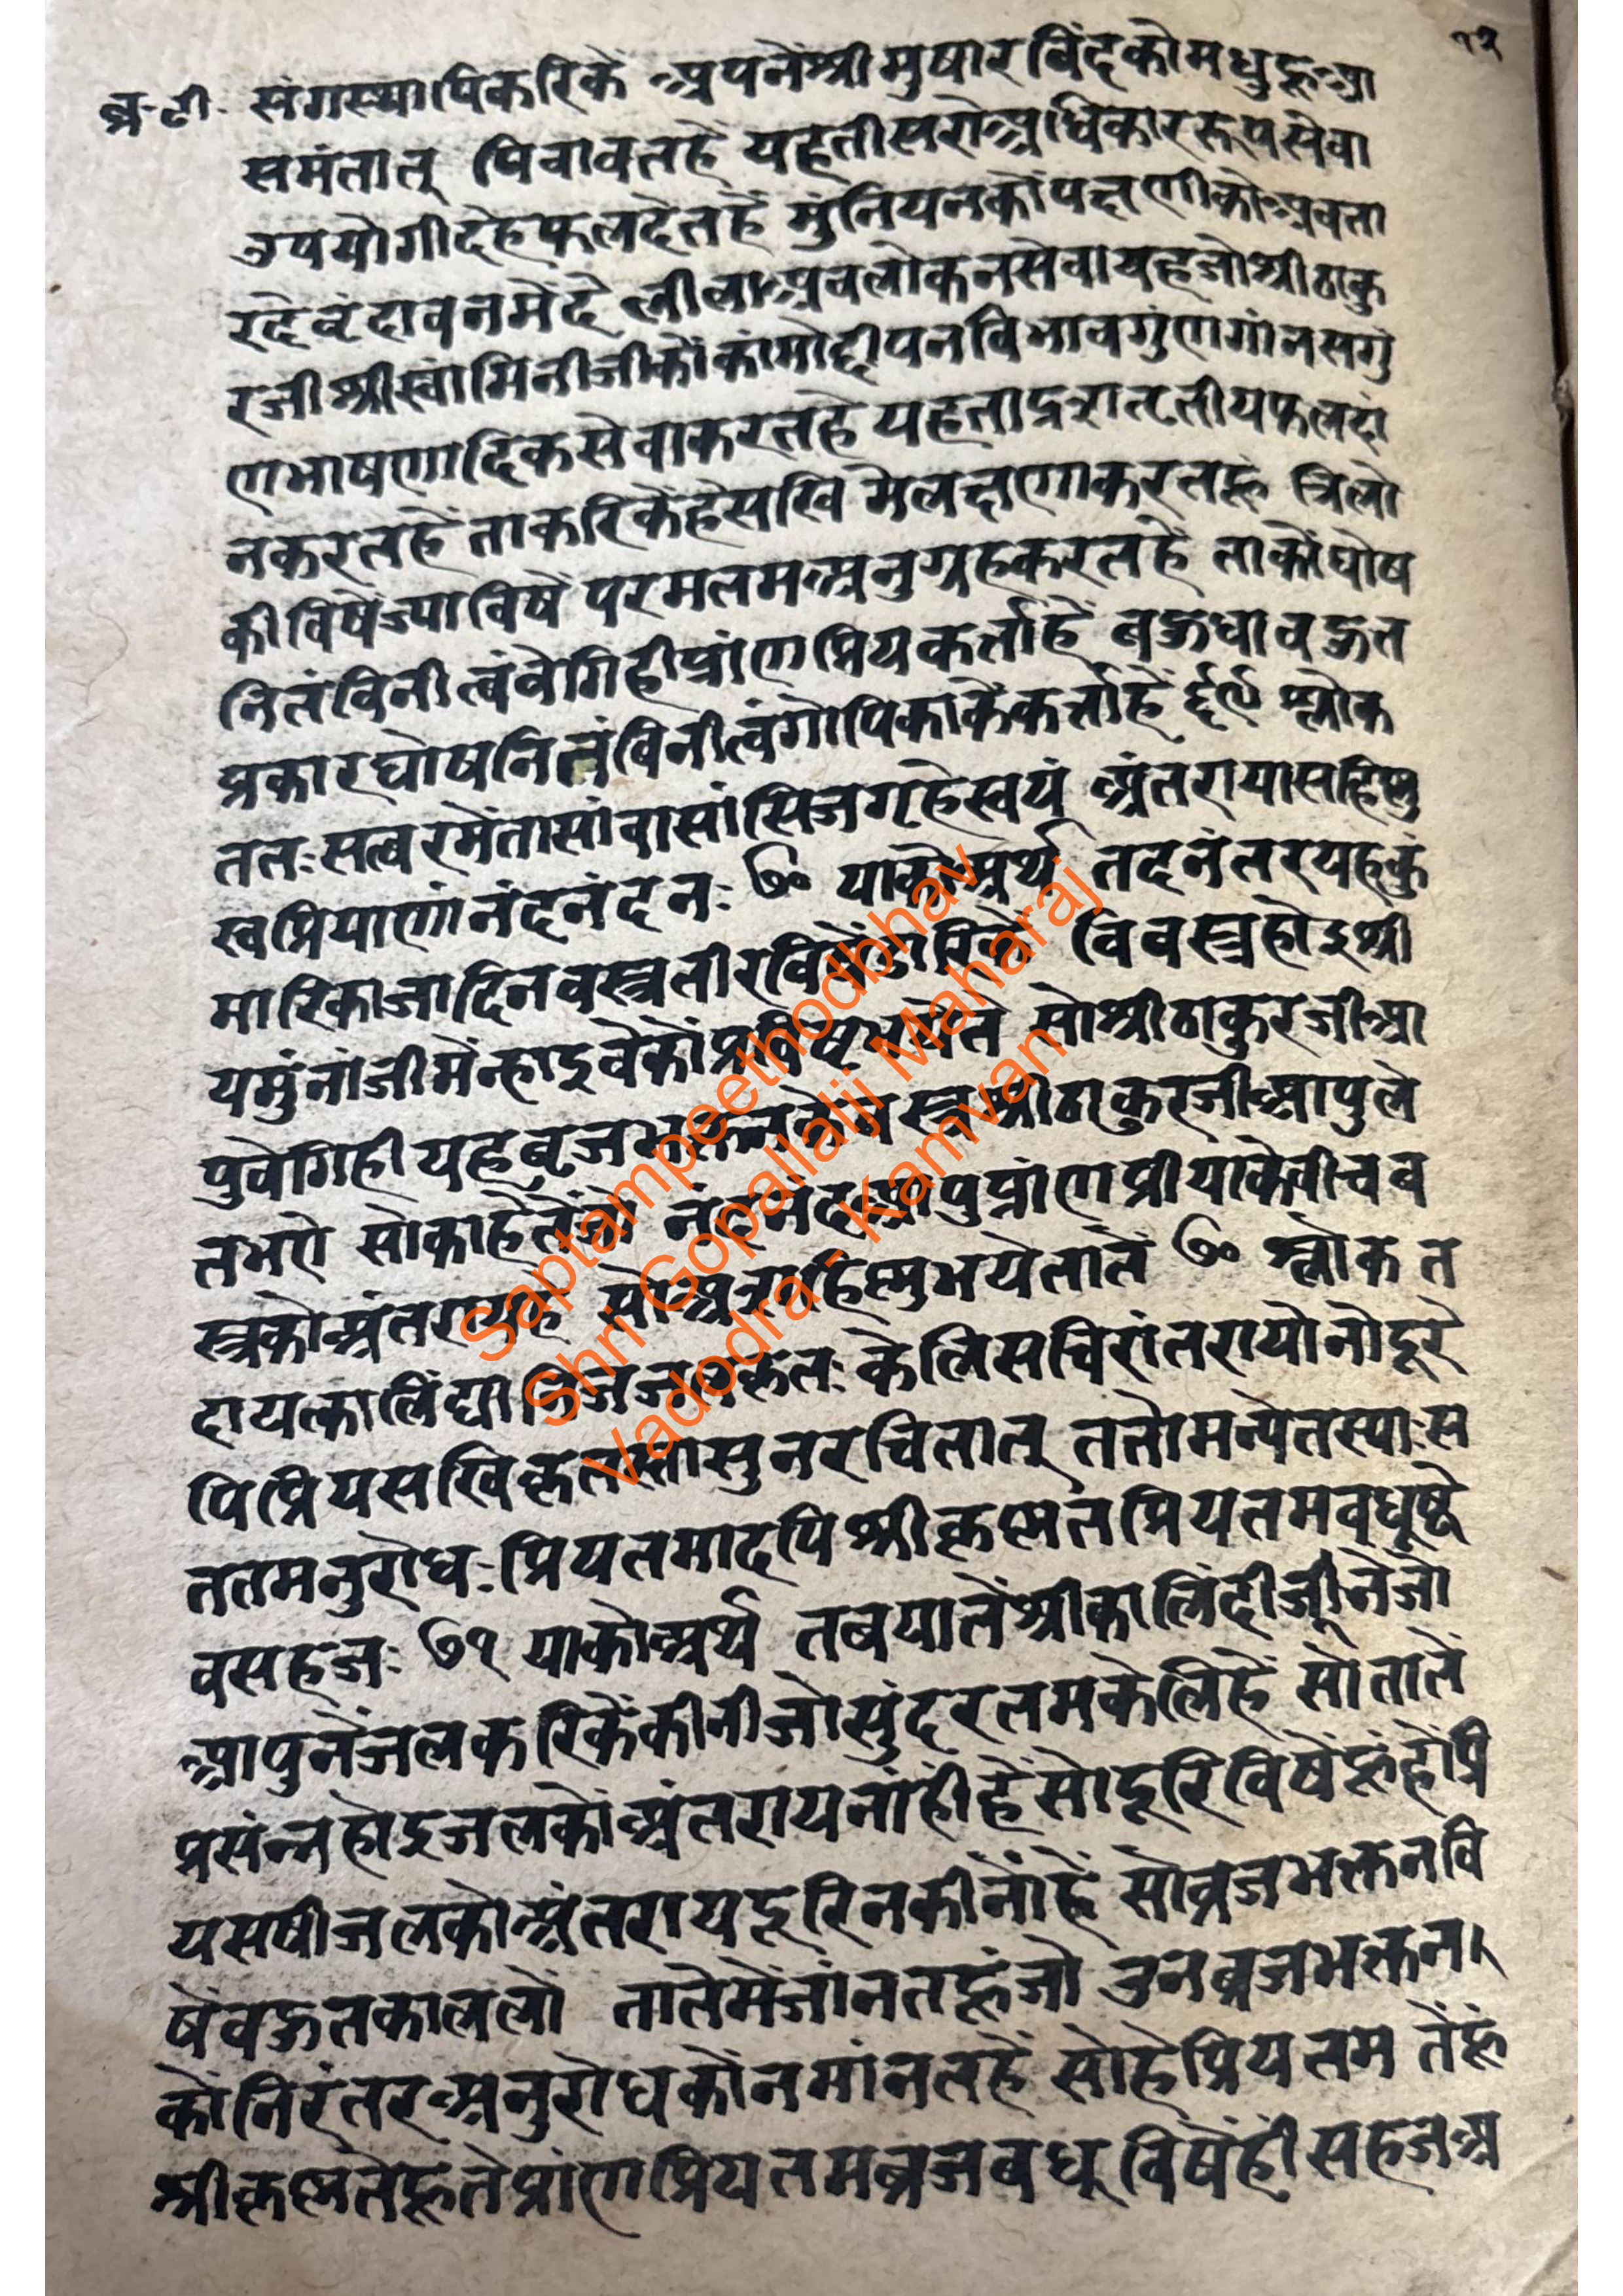 १२
ब्र·टी· संगस्थापिकरिकें अपनेंश्रीमुषारविंदकोमधुहूआ
समंतात् पिवावतहें यहतीसरोअधिकाररूपसेवा
उपयोगीदेहफलदेतहें मुंनियनकोंपक्षणीकोअवता
रदेवृंदावनमेंदें लीलाअवलोकनसेवायहजोश्रीठाकु
रजीश्रीस्वांमिनीजीकोंकांमोद्दीपनविभावगुंणगांनसगुं
णभाषणादिकसेवाकरतहें यहताद्रशतृतीयफलदां
नकरतहें ताकरिकेंहेसखि मेंलक्षणाकरतहूं त्रिलो
कीविषेंज्याविषें परमतमअनुग्रहकरतहें ताकोंघोष
नितंविनीत्वंवेगिहीप्रांणप्रियकर्ताहें बहुधावहुत
प्रकारघोषनितंविनीत्वंगोपिकाकेंकर्त्ताहें ६९ श्लोक
ततःसत्वरमेतासांवासांसिजगृहेस्वयं अंतरायासहिष्णु
स्वप्रियाणांनंदनंदनः ७० याकोअर्थ तदनंतरयहकुं
मारिकाजादिनवस्त्रतीरविषेंडारिकें विवस्त्रहोइश्री
यमुंनांजीमेंन्हाइवेकोंप्रविष्टभयेतें सोश्रीठाकुरजीआ
पुवेगिहीयहबृजभक्तनकेवस्त्रश्रीठाकुरजीआपुले
तभऐ सोकाहेतेंजो नंदनंदनआपुप्रांणप्रीयाकेवीचव
स्त्रकोअंतरायहें सोअसहिष्णुभयेतातें ७० श्लोक त
दायत्कालिंद्यानिजजलकृतः केलिसचिरांतरायोनोदूरे
पिप्रियसखिकृतस्तासुनरचितात् ततोमन्येतस्याःस
ततमनुरोधःप्रियतमादपिश्रीकृष्णतप्रियतमवधूष्वे
वसहजः ७१ याकोअर्थ तबयातेंश्रीकालिंदीजूनेंजो
आपुनेंजलकरिकेंकीनीजोसुंदरतमकेलिहें सोतातें
प्रसंन्नहोइजलकोंअंतरायनांहीहेंसोदूरिविषेंहूंहोंप्रि
यसषीजलकोअंतरायदूरिनकीनोंहें सोब्रजभक्तनवि
षेंवहुतकाललों तातेमेंजांनतहूंजो उनब्रजभक्तन।
कोंनिरंतरअनुरोधकोंनमांनतहें सोहेप्रियतम तेंहूं
श्रीकृष्णतेंहूतेप्रांणप्रियतमब्रजबधूविषेंहींसहजअ
Saptampeethodbhav
Shri Gopallalji Maharaj
Vadodra - Kamvan